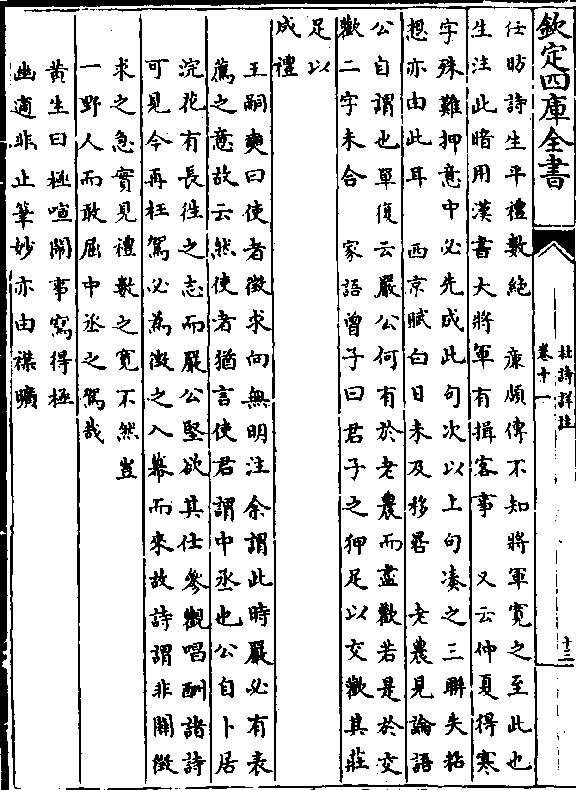 欽定四庫全書
杜詩詳註
卷十一
十三
任昉詩生平禮數絶 廉頗傳不知將軍寛之至此也
生注此暗用漢書大將軍有揖客事 又云仲夏得寒
字殊難押意中必先成此句次以上句凑之三聯失粘
想亦由此耳 西京賦白日未及移晷 老農見論語
公自謂也單復云嚴公何有於老農而盡歡若是於交
歡二字未合 家語曾子曰君子之狎足以交歡其莊
足以
成禮
王嗣奭曰使者徵求向無明注余謂此時嚴必有表
薦之意故云然使者猶言使君謂中丞也公自卜居
浣花有長徃之志而嚴公堅欲其仕參觀唱酬諸詩
可見今再枉駕必為徵之入幕而來故詩謂非關徵
求之急實見禮數之寛不然豈
一野人而敢屈中丞之駕哉
黄生曰極喧鬧事寫得極
幽適非止筆妙亦由襟曠